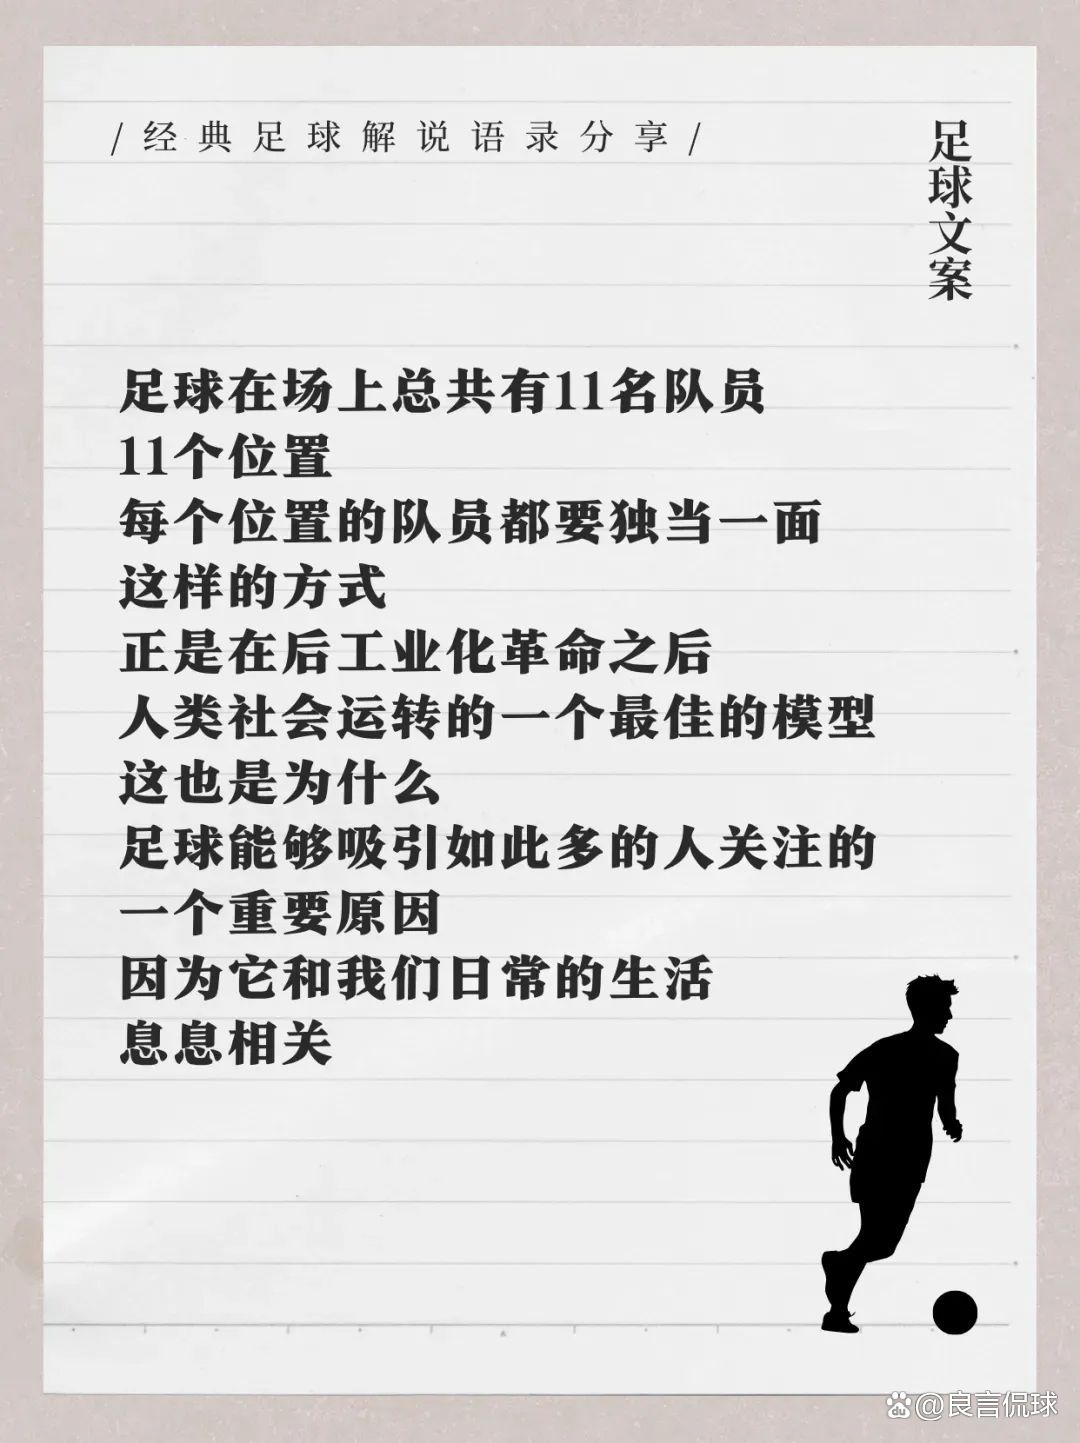 /经典足球解说语录分享/
足球文案
足球在场上总共有11名队员
11个位置
每个位置的队员都要独当一面
这样的方式
正是在后工业化革命之后
人类社会运转的一个最佳的模型
这也是为什么
足球能够吸引如此多的人关注的
一个重要原因
因为它和我们日常的生活
息息相关
du @良言侃球